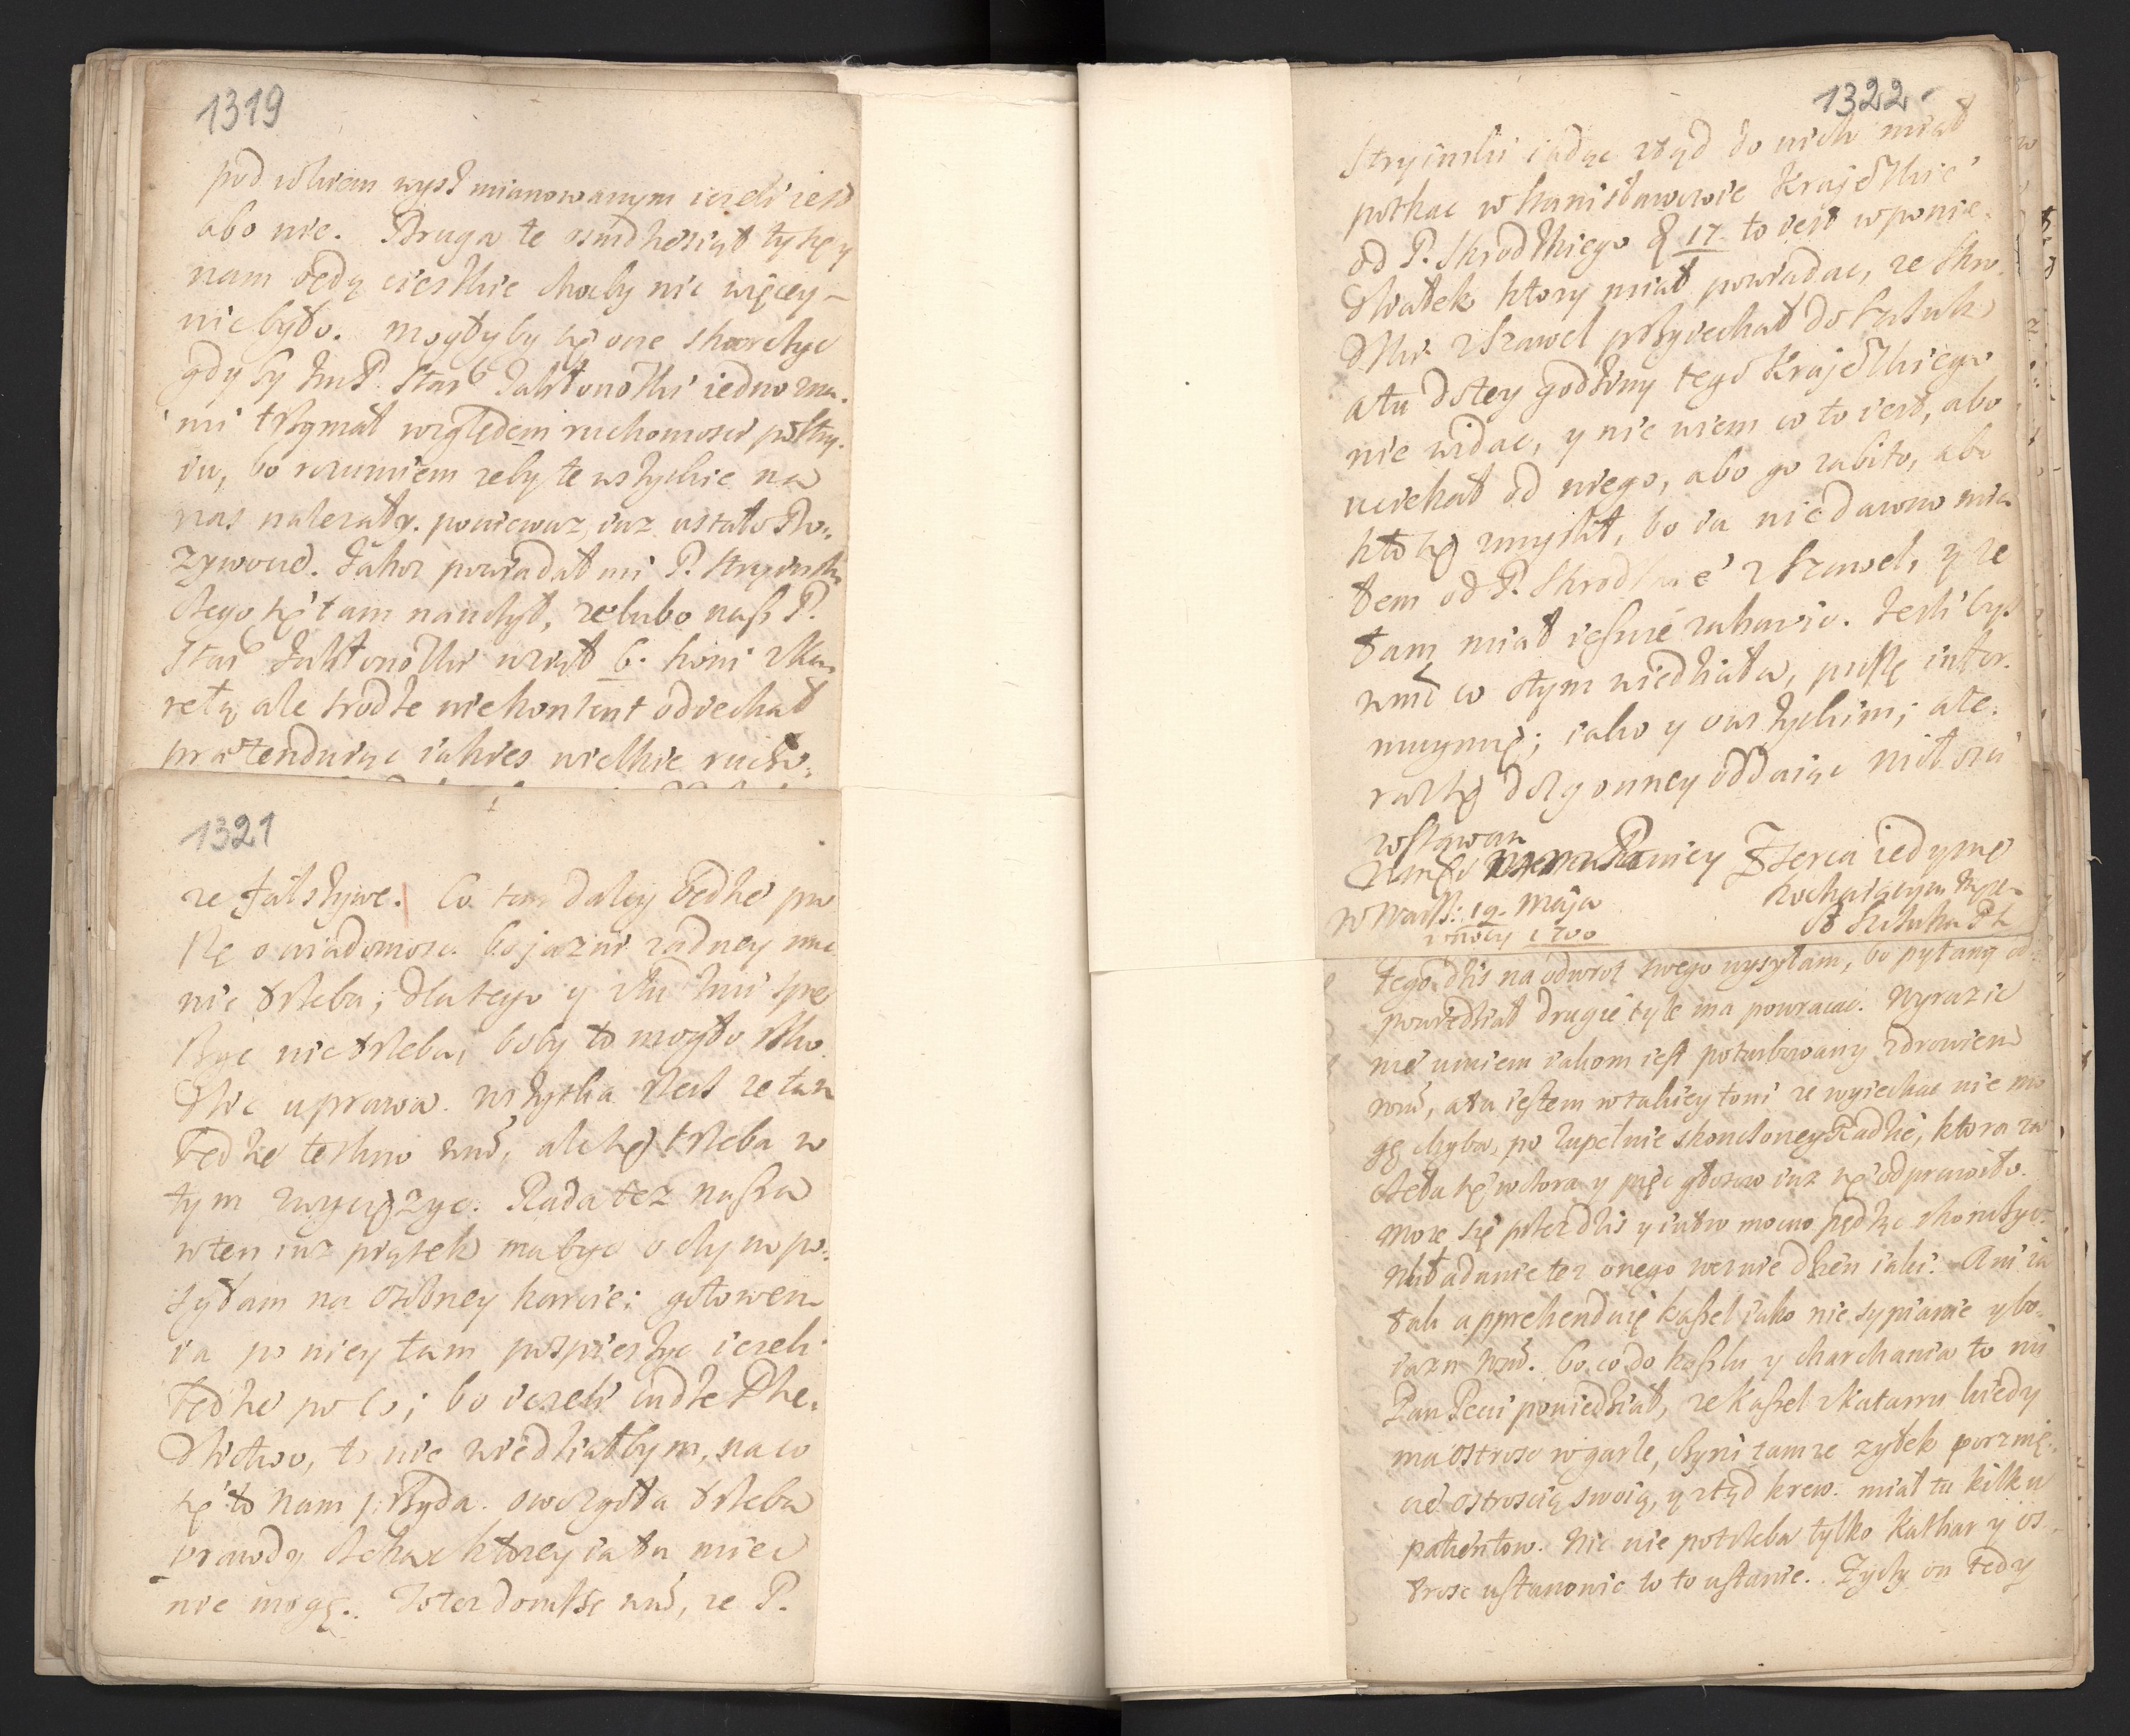 1319
pod wiekiem wysz mianowanym iezeli iest
abo nie. Druga te osmdziesiąt tysięcy
nam będą cieszkie choćby nic więcey
nie było. mogłyby się one skończyc
gdyby ImP. Star Jabłonoski iedno zna-
mi trzymał względem ruchomosci
iu, bo rozumiem zeby te wszytkie na
nas nalezały. poniewaz iuz ustało Do-
zywocie. Jakoz powiadał mi P. Stryinski
czego się tam nauczył, ze lubo nasz P.
Star Jabłonoski wziął 6. koni zka-
retą ale srodze niekontent odiechał
prætenduiąc iakies wielkie rucho-
1321
ze fałszywe. Co tam daley będzie pro
szę o wiadomosc. bojazni zadney mie
nie trzeba, dlatego y ztu
bye nie trzeba, boby to mogło szko
dzic uprawa. wszytka rzecz ze tam
będzie teskno wmć, ale się trzeba w
tym zwycięzyc. Rada tez nasza
w ten iuz piątek ma byc o czym po-
syłam na osobney karcie; gotowem
ia po niey tam pospieszyc iezeli
będzie po co; bo iezeli cudze Dzie-
dzictwo, to nie wiedziałbym, na co
się to nam przyda. owo zgoła trzeba
prawdy czekac ktorey ia tu miec
nie mogę. To tez donoszę wmć, ze P.
1322
Stryinski iadąc ztąd do nich miał
potkac w Stanisławowie Krajewskie
od P. Skrodzkiego d 17 to iest w ponie-
działek ktory miał powiadac, ze Skro
dzki z Szawel przyiechał do
a tu do tey godziny tego Krajewskiego
nie widac, y nie wiem co to iest, abo
uciekał od niego, abo go zabito, abo
kto się zmyslił, bo ia niedawno mia
łem od P. Skrodzkie z Szawel, y ze
tam miał ieszcze zabawic. Jesli bys
wmć co otym wiedziała, proszę infor-
muymię; iako y owszytkim; a te-
raz się dozgonney oddaię miłosci
zostawam
Pamiey Serca iedyme
kochaiącym
W Warsz: 19. Maja
w nocy 1700
tego dzis na odwrot swego wysyłam, bo pytany od-
powiedział drugie tyle ma powracac. Wyrazic
nie umiem iakom iest poturbowany zdrowiem
wmć, a tu iestem w takiey toni ze wyiechac nie mo
gę chyba, po zupełnie skonczoney Radzie, ktora za
częła się wczora y pięc głosow iuz się odprawiło.
moze się przez dzis y iutro mocno pędząc skonczyc.
Układanie tez onego wezmie dzien iaki. Ani ia
tak apprehenduię kaszel iako nie sypianie y bo-
iazn wmć. bo co do kaszlu y charchania to mi
Pan Peci powiedział, ze kaszel z kataru kiedy
ma ostrosc w garle, czyni tamze zyłek porznię-
cie ostroscią swoią, y ztąd krew. miał tu kilku
patientow. Nic nie potrzeba tylko Kathar y os-
trosc ustanowic to to ustanie. Zyczy on tedy